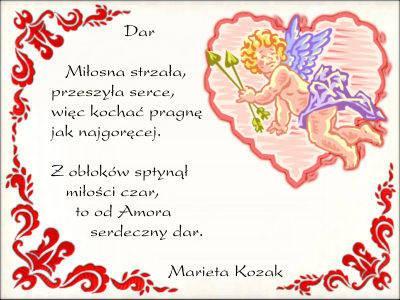 Dar
Miłosna strzała,
przeszyła serce,
więc kochać pragnę
jak najgoręcej.
Z obłoków spłynął
miłości czar,
to od Amora
serdeczny dar.
Marieta Kozak